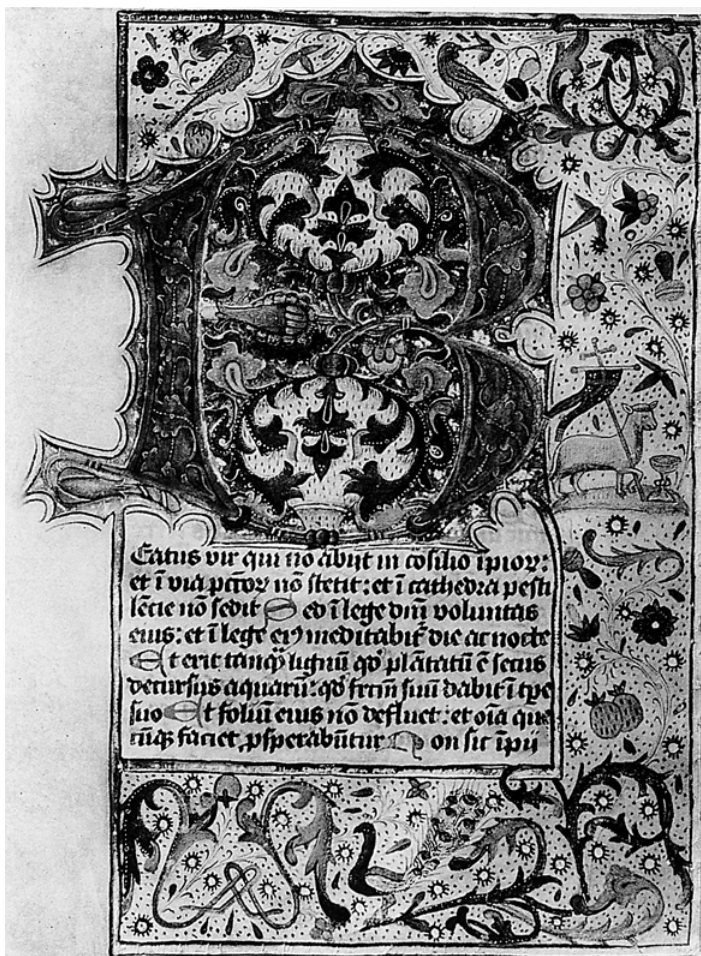 B
Eatus vir qui nō abijt in cōsilio īpioꝝ:
et ī via pctoꝝ nō stetit: et ī cathedra pesti
lētie nō sedit Sed ī lege dnī voluntas
eius: et ī lege eiꝰ meditabit᷑ die ac nocte
Et erit tanqꝫ lignū qđ plātatū ē secus
decursus aquarū: qđ frctm̄ suū dabit ī tꝑe
suo Et foliū eius nō defluet: et oīa que
cūqꝫ faciet, ꝓsperabūtur Non sic īpij